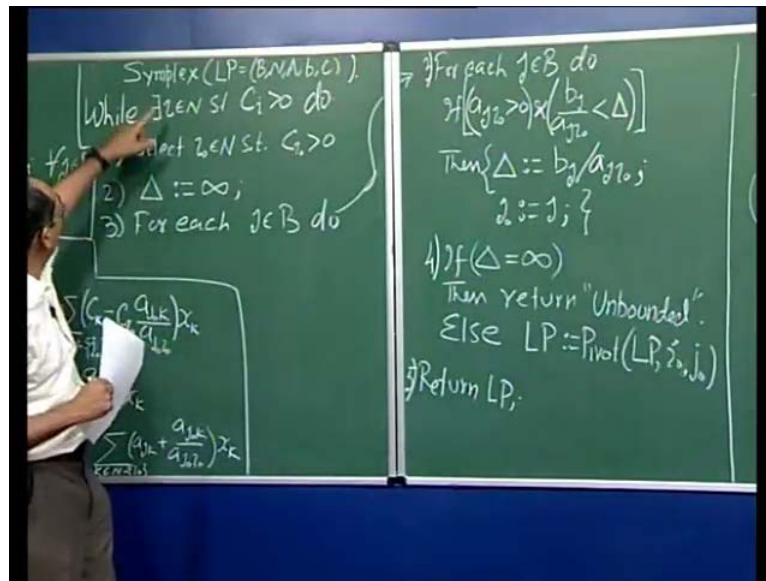 Symplex (LP=(B,N,A,b,C)).
While ∃i∈N St Ci>0 do
Select i₀∈N St. Ci₀>0
2) Δ := ∞;
3) For each j∈B do
∑(Ck - C aj₀k/aj₀i₀)xk
xk
∑(ajk + aj₀k/aj₀i₀)xk
k∈N-{i₀}
3) For each j∈B do
If [(aji₀>0) & (bj/aji₀<Δ)]
Then { Δ := bj/aji₀;
j₀ := j; }
4) If (Δ=∞)
Then return "Unbounded".
Else LP := Pivot(LP, i₀, j₀)
5) Return LP;